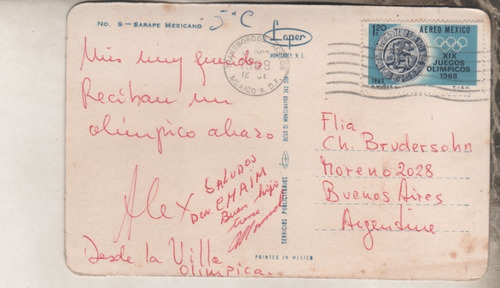 No. 9 - SARAPE MEXICANO
5°C
Loper
MONTERREY, N. L.
MEXICO
AEREO MEXICO
1.20
XIX
JUEGOS
OLIMPICOS
1968
1965
Mis muy
Reciban un
olimpico abrazo
Alex
SALUDOS
Don CHAIM
Buen hijo
tiene
Desde la Villa
olimpica.
SERVICIOS PUBLICITARIOS
PRINTED IN MEXICO
Flia
Ch. Brudersohn
Moreno 2028
Buenos Aires
Argentina